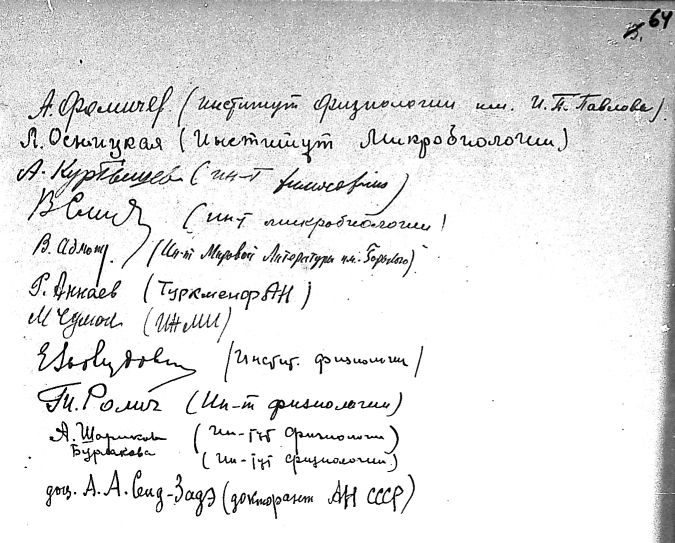 64
А. Фомичев. (Институт физиологии им. И. П. Павлова).
Л. Осницкая (Институт Микробиологии)
А. (ин-т философии)
В. (ин-т микробиологии)
В. (Ин-т Мировой Литературы им. Горького)
Г. Аннаев (ТуркменфАН)
М (ИЖМИ)
(Инстит. физиологии)
Гп. Ролич (Ин-т физиологии)
А. Шарикова (Ин-тут физиологии)
Бурлакова (Ин-тут физиологии)
доц. А. А. Сеид-Задэ (докторант АН СССР)